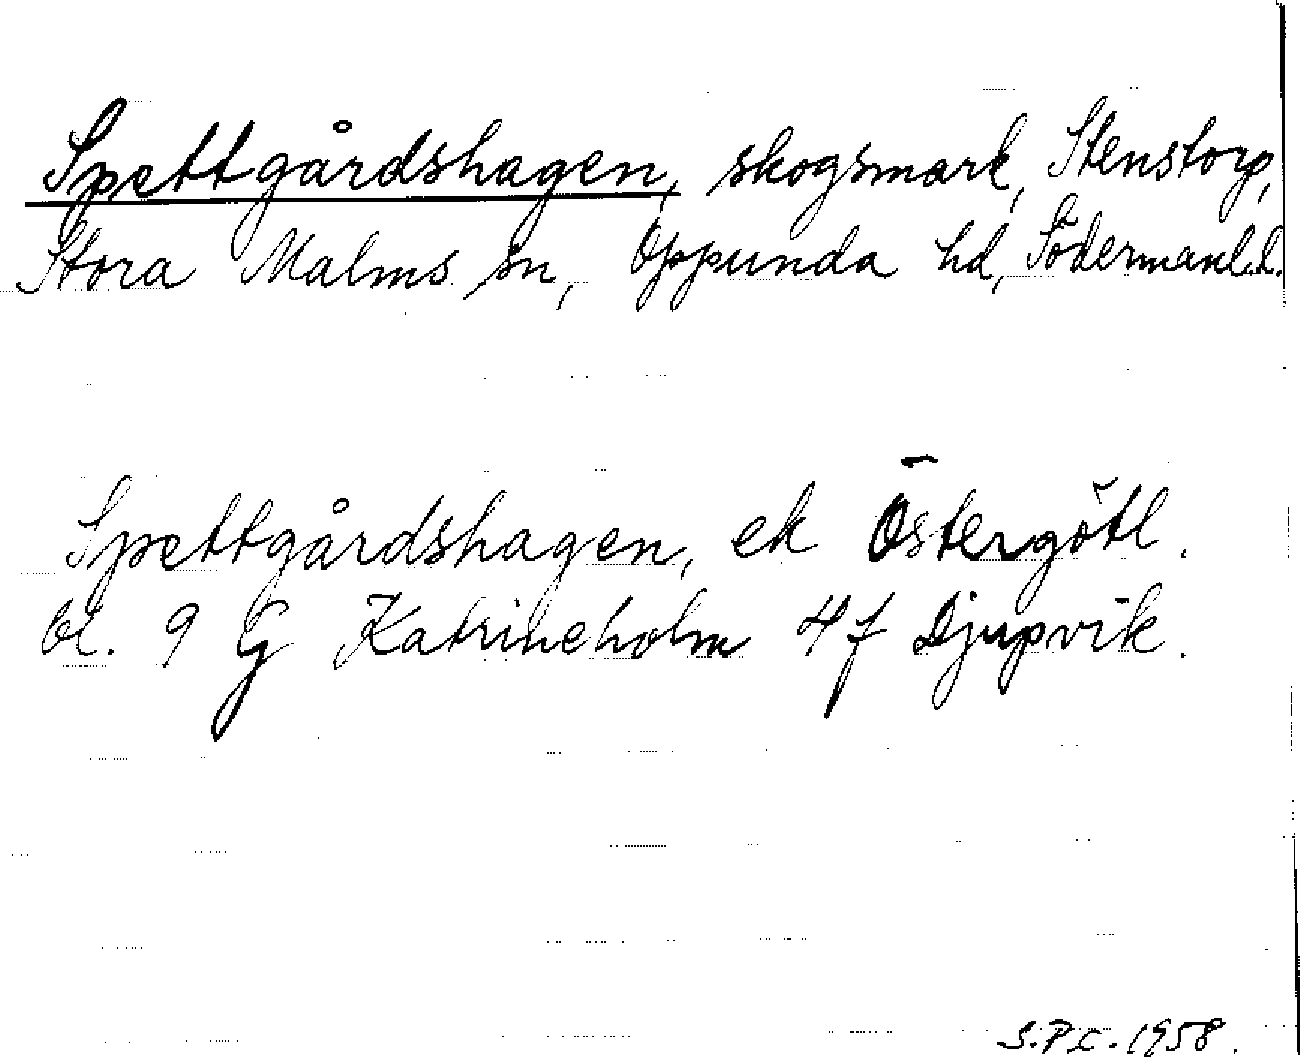 Spettgårdshagen, skogsmark, Stenstorp,
Stora Malms sn, Oppunda hd, Södermanl.l.
Spettgårdshagen, ek Östergötl.
bl. 9 G Katrineholm 4f Djupvik.
1958.